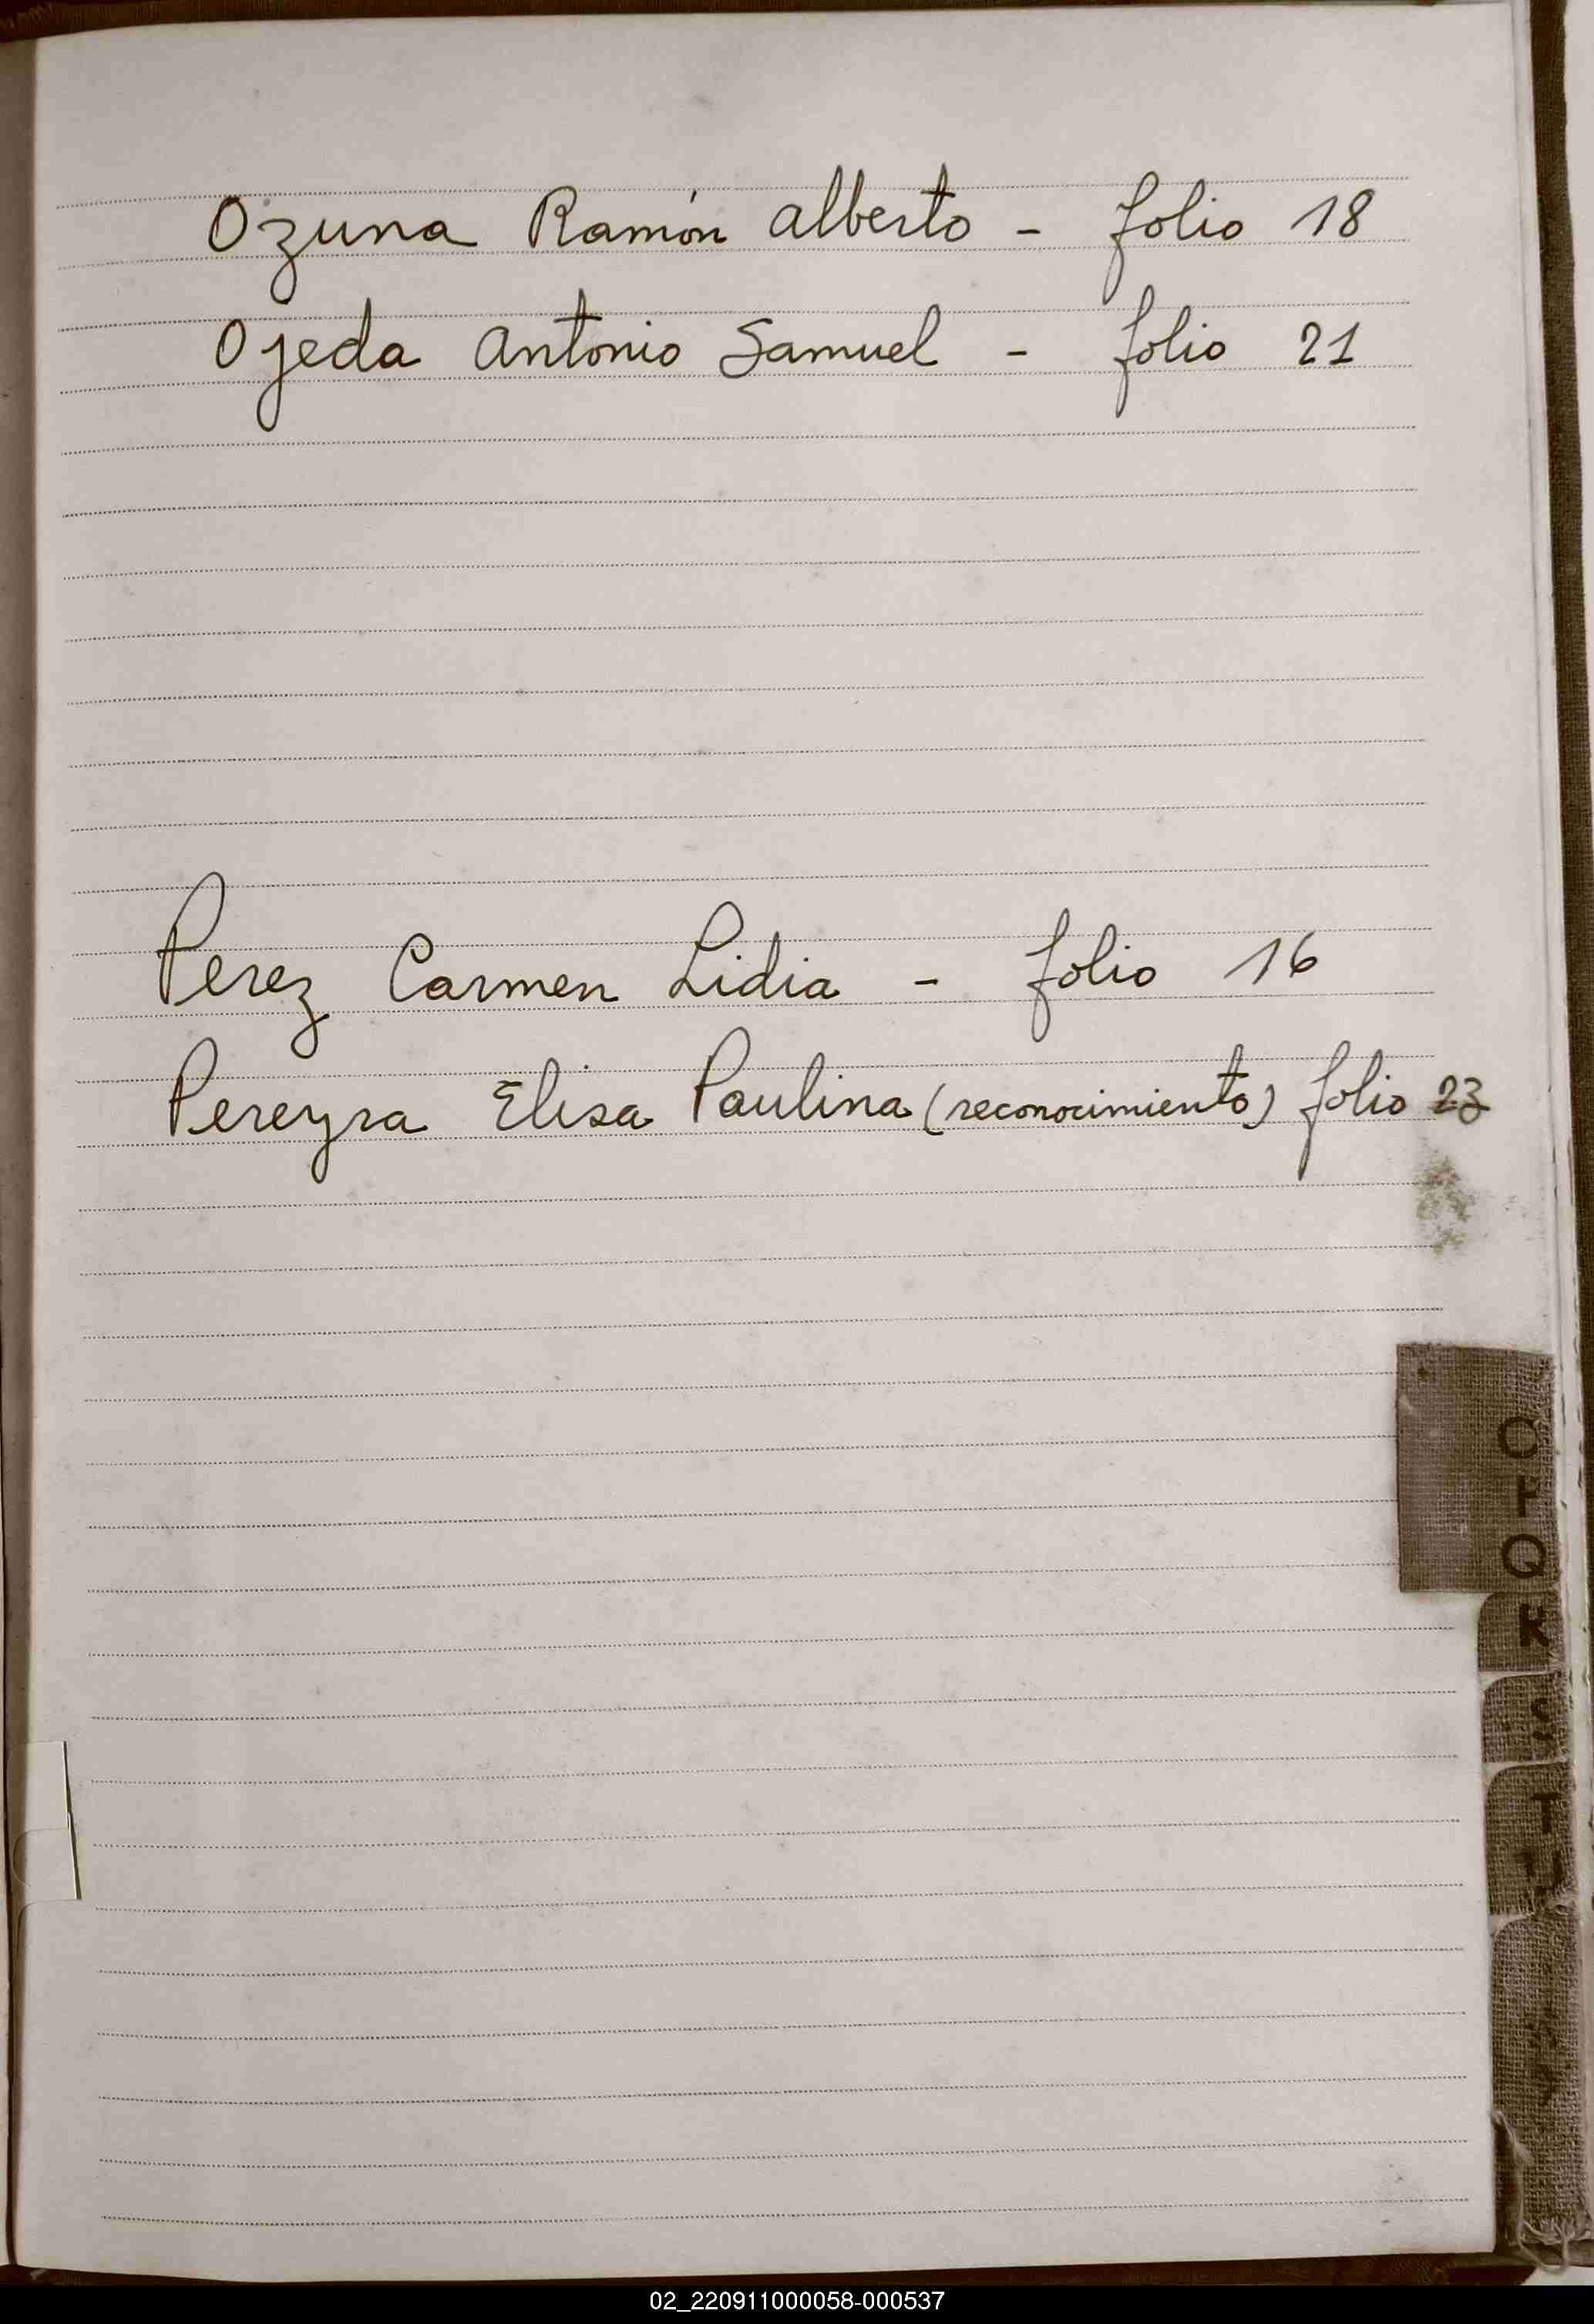 Ozuna Ramón Alberto - folio 18
Ojeda Antonio Samuel - folio 21
Perez Carmen Lidia - folio 16
Pereyra Elisa Paulina (reconocimiento) folio 23
O
P
Q
R
S
T
02_220911000058-000537